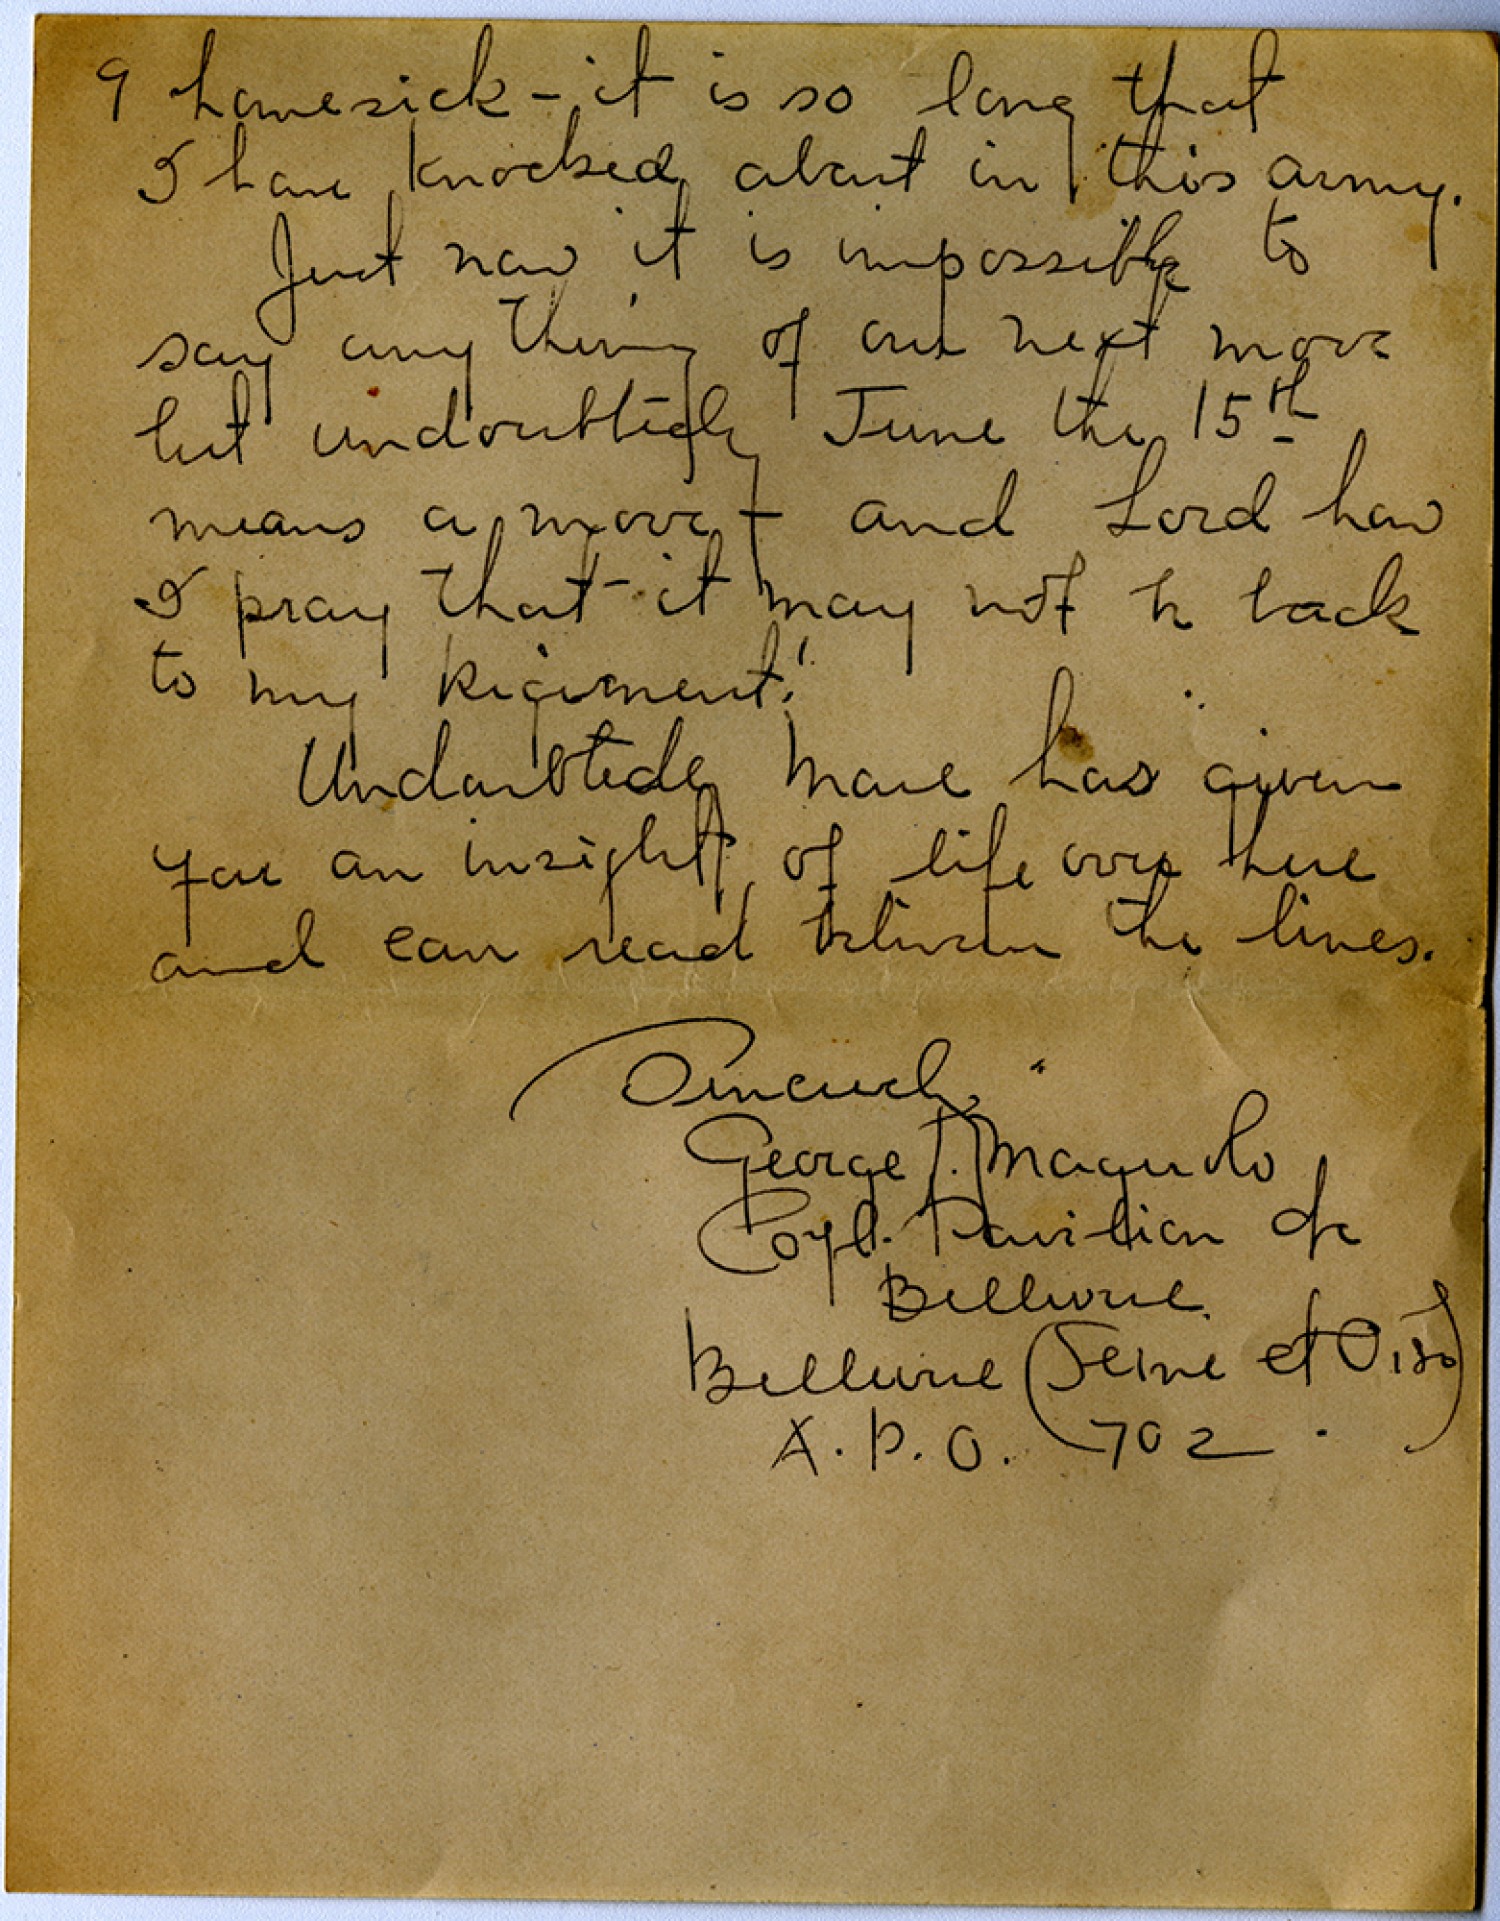 9 homesick - it is so long that
I have knocked about in this army.
Just now it is impossible to
say anything of our next move
but undoubtedly June the 15th
means a move - and Lord how
I pray that it may not be back
to my Regiment!
Undoubtedly Mare has given
you an insight of life over here
and can read between the lines.
Sincerely,
George J. Magnolo
Corpl. Pavilion de
Bellevue
Bellevue (Seine et Oise)
A.P.O. 702.